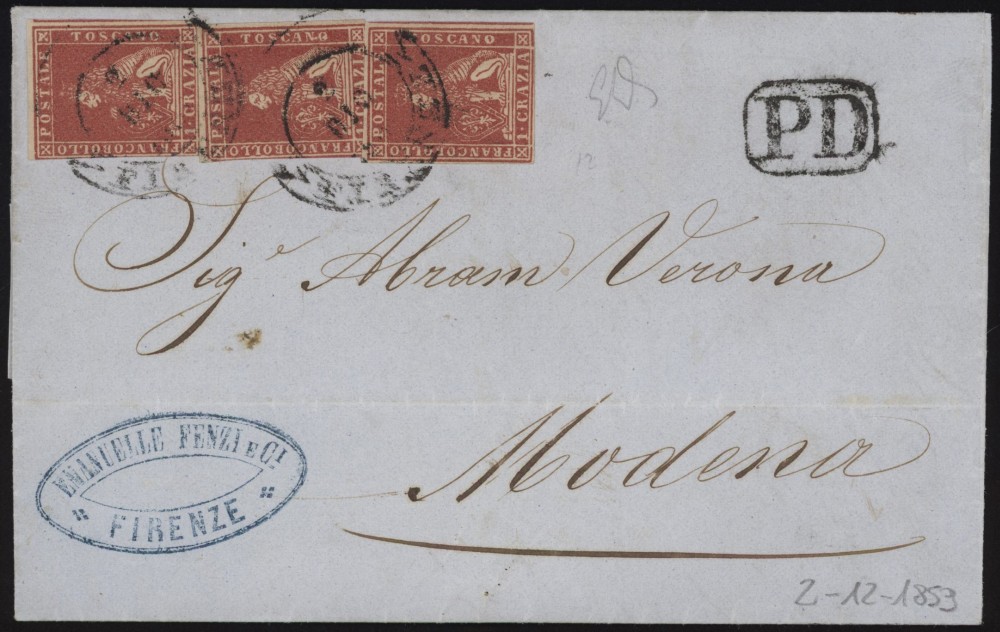 TOSCANO
POSTALE
1·CRAZIA
FRANCOBOLLO
TOSCANO
POSTALE
1·CRAZIA
FRANCOBOLLO
TOSCANO
POSTALE
1·CRAZIA
FRANCO
PD
12
Sigr Abram Verona
Modena
EMANUELLE FENZI E CI.
FIRENZE
2-12-1853